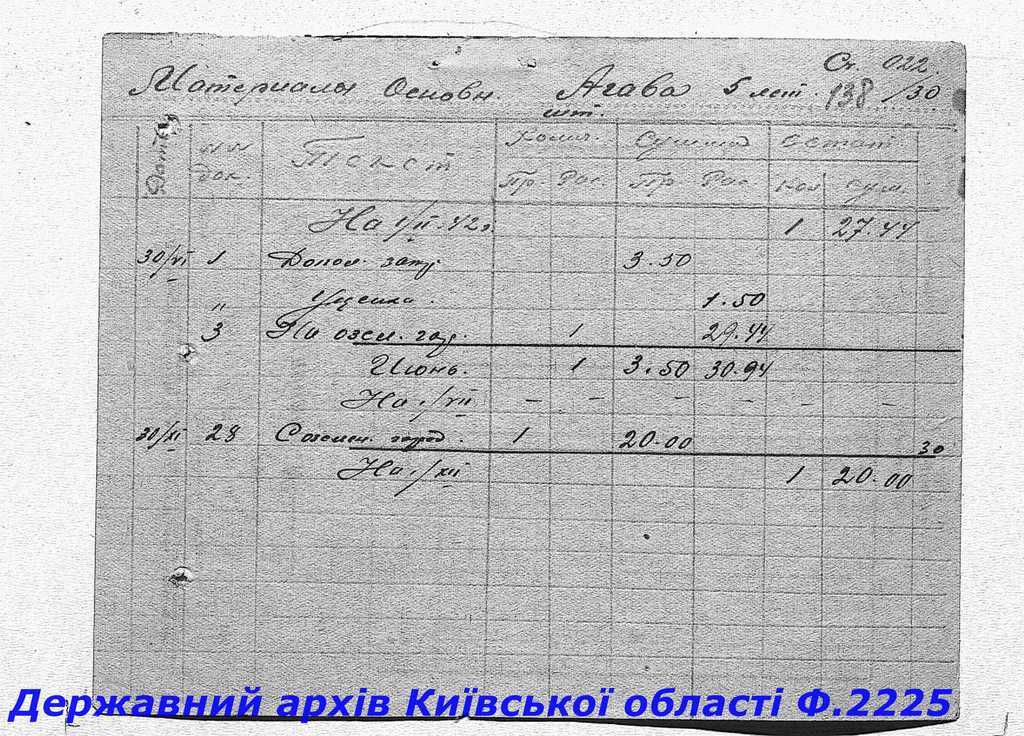 Ст. 022.
Материалы Основн. Агава 5 лет. 138/30
шт.
Дата NN док. Текст Колич. Сумма Остат
Пр. Рас. Пр Рас Кол Сум.
На 1/II.42г. 1 27.44
30/VI 1 Допол. затр. 3.50
" Уценка. 1.50
3 На озел. гор. 1 29.44
Июнь. 1 3.50 30.94
На 1/VII – – – – – –
30/XI 28 С озелен. город. 1 20.00 30
На 1/XII 1 20.00
Державний архів Київської області Ф.2225